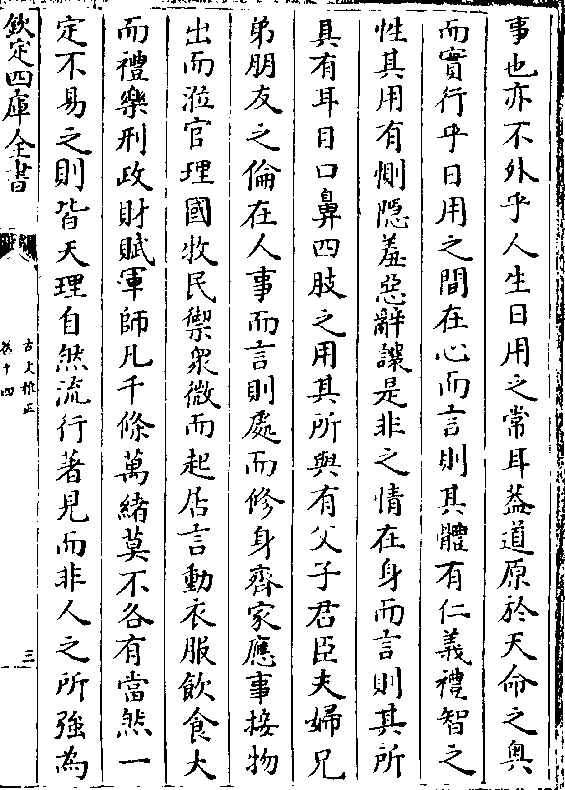 事也亦不外乎人生日用之常耳蓋道原於天命之奥
而實行乎日用之間在心而言則其體有仁義禮智之
性其用有惻隠羞惡辭讓是非之情在身而言則其所
具有耳目口鼻四肢之用其所與有父子君臣夫婦兄
弟朋友之倫在人事而言則處而修身齊家應事接物
出而涖官理國牧民禦衆微而起居言動衣服飲食大
而禮樂刑政財賦軍師凡千條萬緒莫不各有當然一
定不易之則皆天理自然流行著見而非人之所強為
欽定四庫全書
古文雅正
卷十四
三